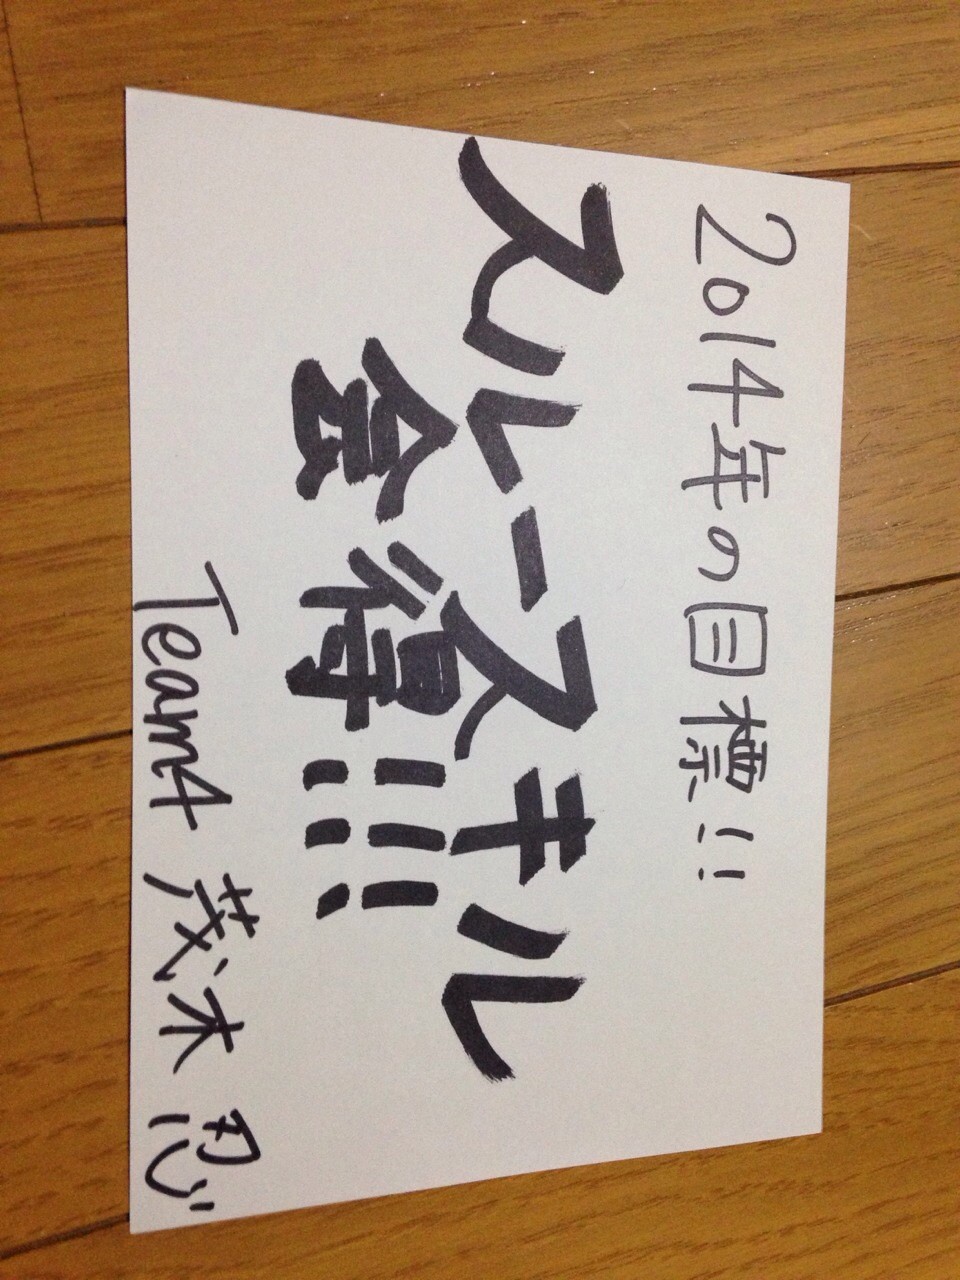 2014年の目標!!
スルースキル
会得!!!!
Team4 茂木 忍